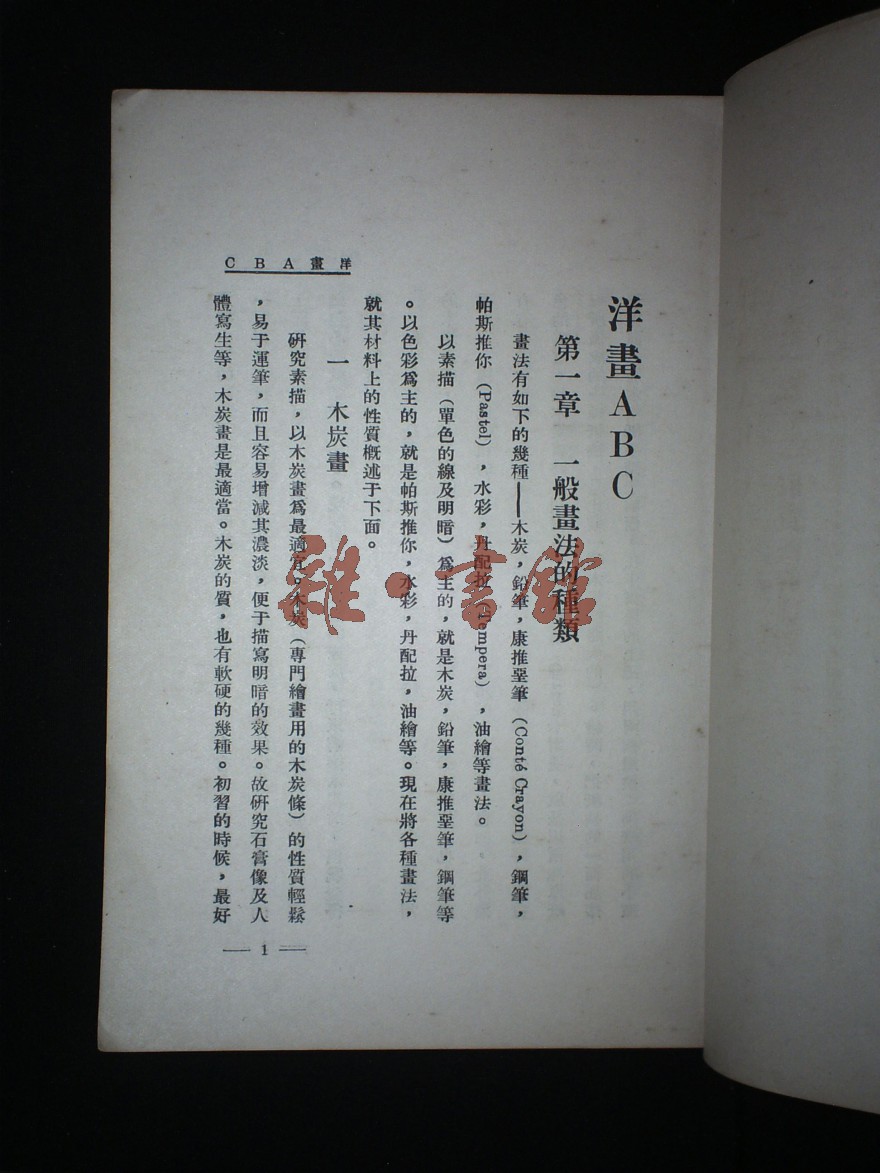 洋畫ABC
第一章　一般畫法的種類
畫法有如下的幾種——木炭，鉛筆，康推堊筆（Conté Crayon），鋼筆，
帕斯推你（Pastel），水彩，丹配拉（Tempera），油繪等畫法。
以素描（單色的線及明暗）爲主的，就是木炭，鉛筆，康推堊筆，鋼筆等
。以色彩爲主的，就是帕斯推你，水彩，丹配拉，油繪等。現在將各種畫法，
就其材料上的性質概述于下面。
一　木炭畫
硏究素描，以木炭畫爲最適宜。木炭（專門繪畫用的木炭條）的性質輕鬆
，易于運筆，而且容易增減其濃淡，便于描寫明暗的效果。故硏究石膏像及人
體寫生等，木炭畫是最適當。木炭的質，也有軟硬的幾種。初習的時候，最好
CBA畫洋
— 1 —
雜·書館